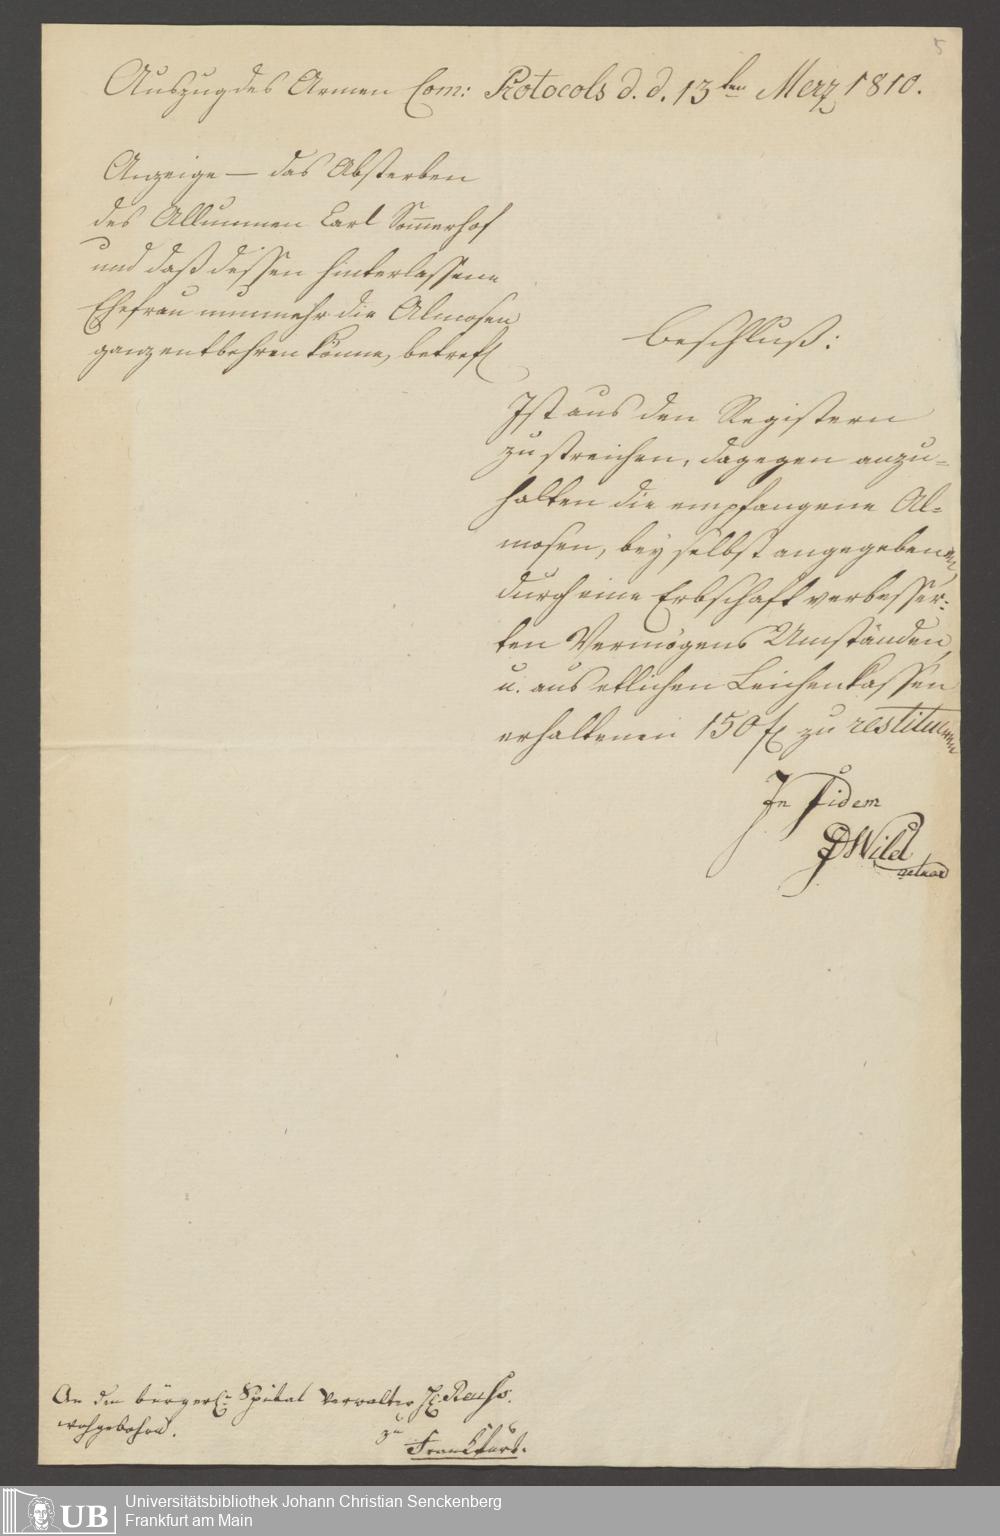 5
Auszug des Armen Com: Protocols d. d. 13ten Merz 1810.
Anzeige — das Absterben
des Allumnen Carl Som̄erhof
und daß dessen hinterlassene
Ehefrau nunmehr die Almosen
ganz entbehren könne, betref
Beschluß:
Ist aus den Registern
zu streichen, dagegen anzu-
halten die empfangene Al-
mosen, bey selbst angegebenen,
durch eine Erbschaft verbesser-
ten Vermögens Umständen,
u. aus etlichen Leichenkassen
erhaltenen 150 f zu restituiren
In fidem
Wild
actuar
An den bürgerl: Spital Verwalter H. Reuß.
wohlgebohrn.
zu
Frankfurt.
UB
Universitätsbibliothek Johann Christian Senckenberg
Frankfurt am Main